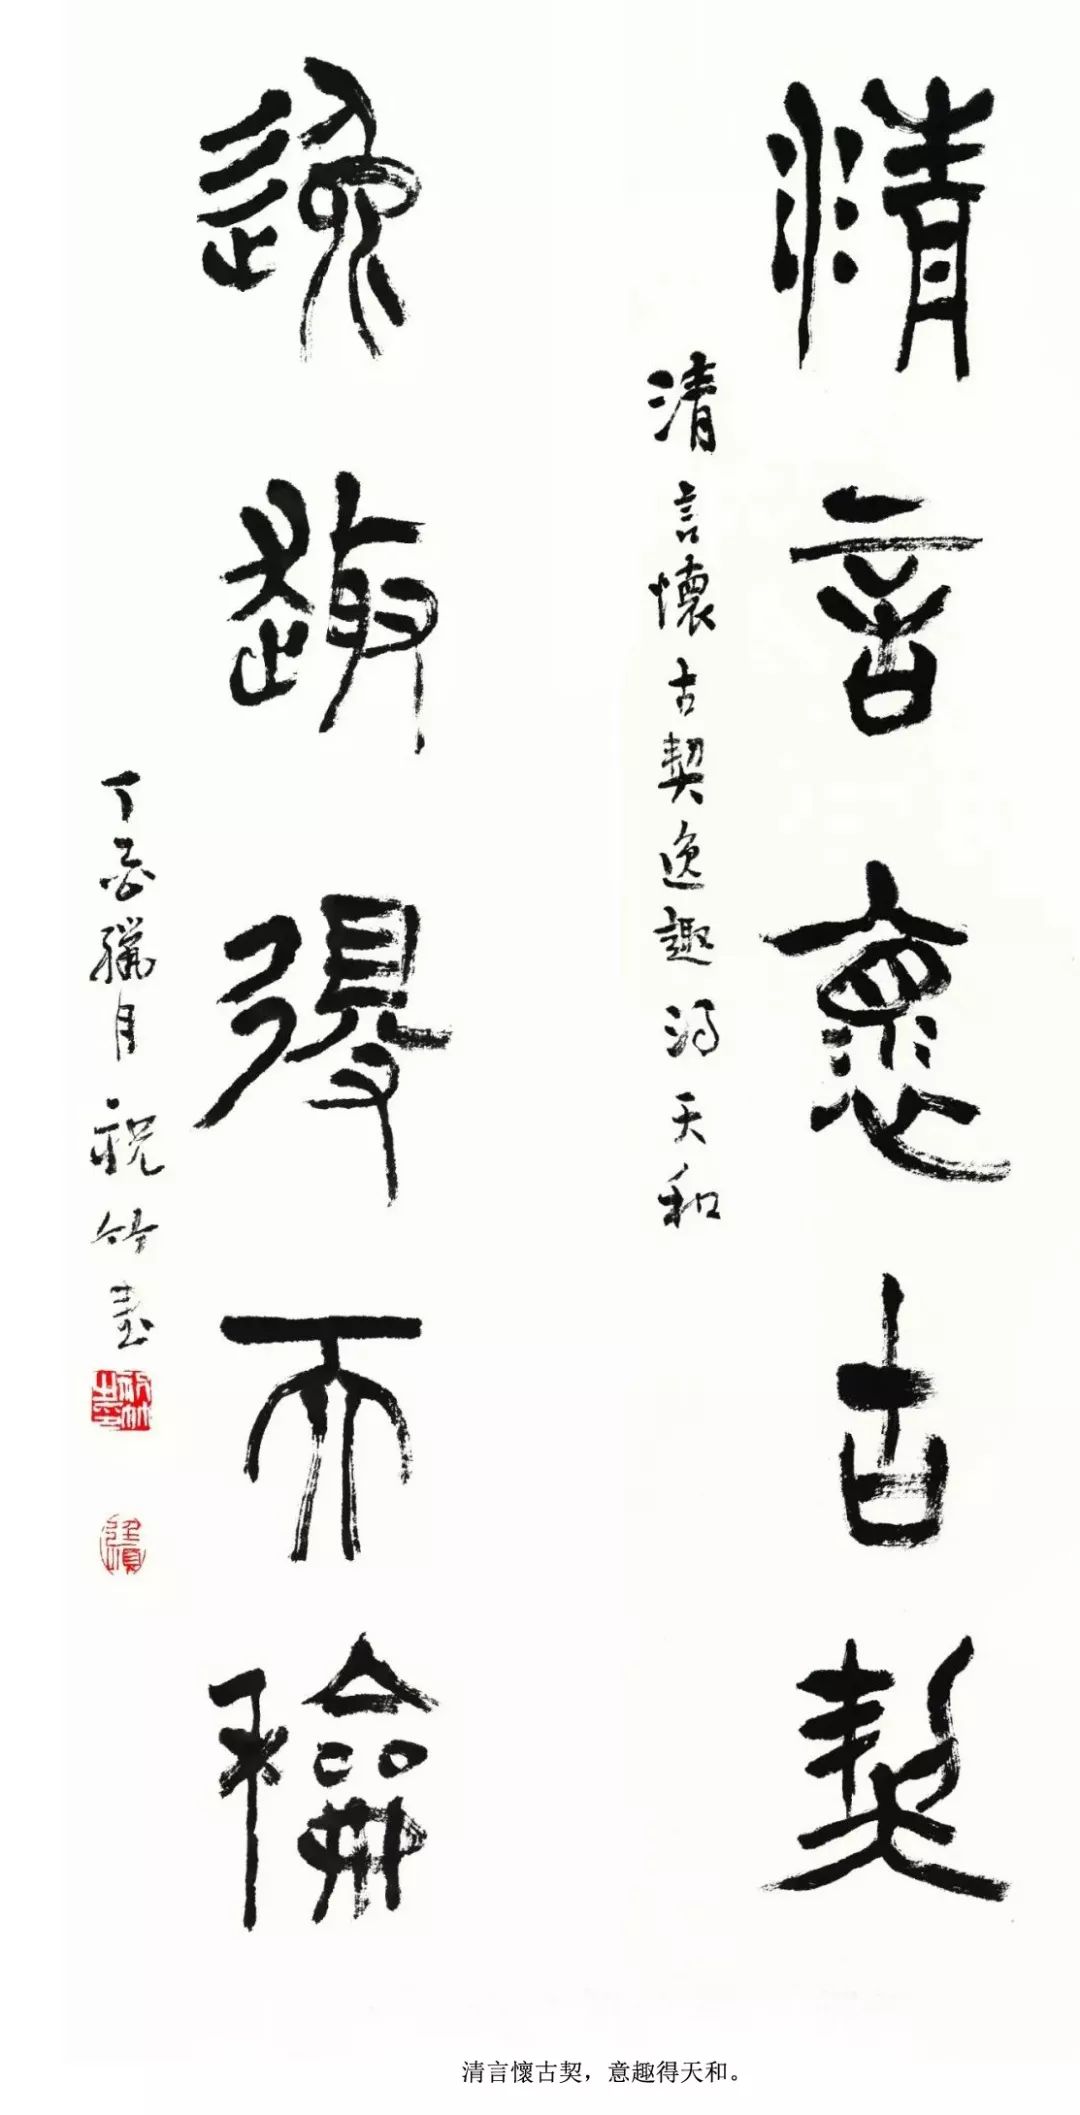 清言懷古契
清言懷古契逸趣得天和
逸趣得天龢
丁酉臘月祝竹書
清言懷古契，意趣得天和。